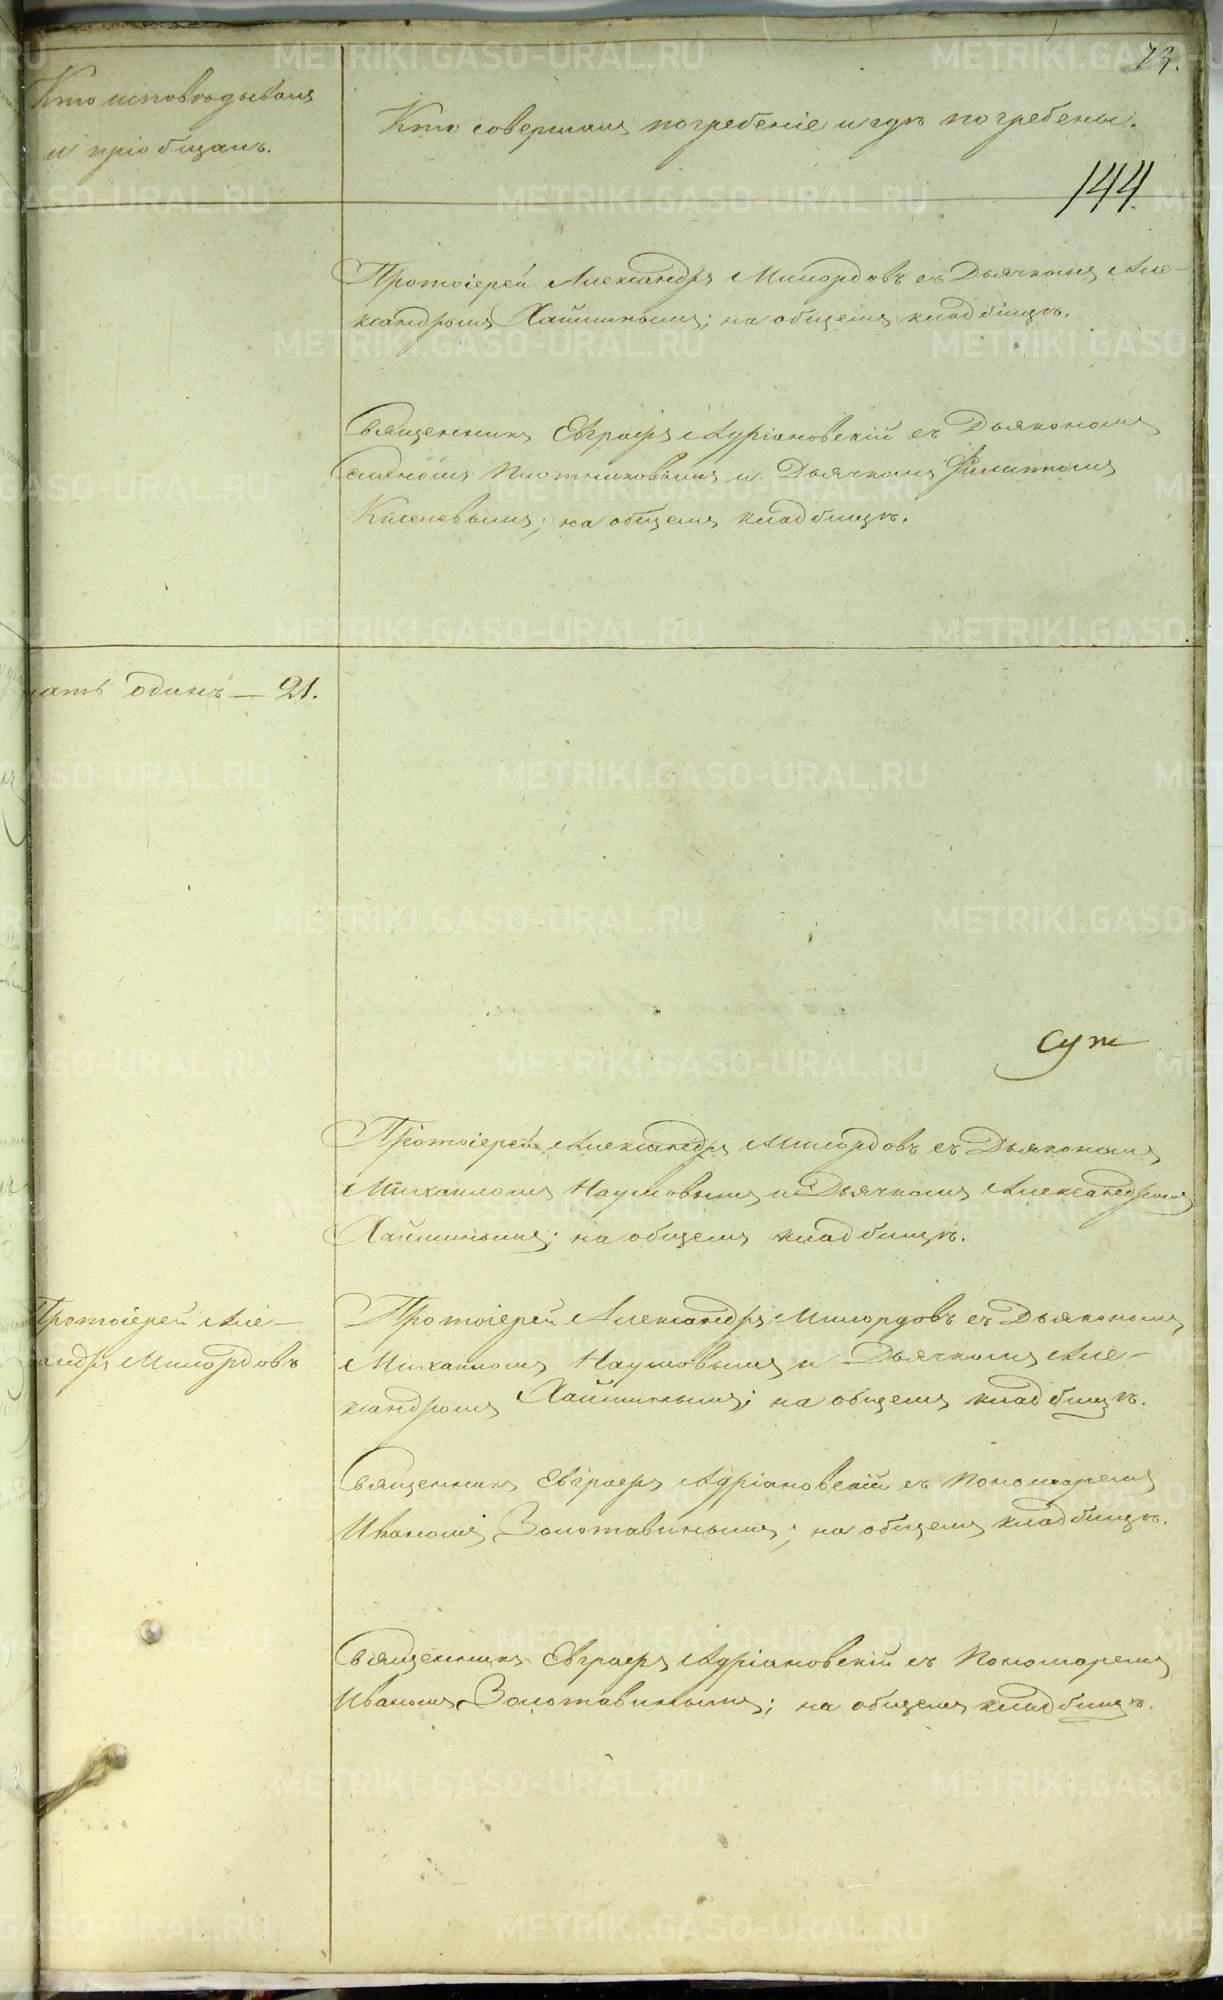 73.
Кто исповѣдывалъ
и пріобщалъ.
Кто совершалъ погребеніе и гдѣ погребены.
144.
Протоіерей Александръ Милордовъ съ Дьячкомъ Але-
ксандромъ Хайминымъ; на общемъ кладбищѣ.
Священникъ Евграфъ Адріановскій съ Дьякономъ
Плотниковымъ и Дьячкомъ Филиппомъ
Киселевымъ; на общемъ кладбищѣ.
цать одинъ — 21.
Протоіерей Александръ Милордовъ съ Дьякономъ
Михаиломъ Наумовымъ и Дьячкомъ Александромъ
Хайминымъ; на общемъ кладбищѣ.
Протоіерей Але-
андръ Милордовъ
Протоіерей Александръ Милордовъ съ Дьякономъ
Михаиломъ Наумовымъ и Дьячкомъ Але-
ксандромъ Хайминымъ; на общемъ кладбищѣ.
Священникъ Евграфъ Адріановскій съ Пономаремъ
Иваномъ Золотавинымъ; на общемъ кладбищѣ.
Священникъ Евграфъ Адріановскій съ Пономаремъ
Иваномъ Золотавинымъ; на общемъ кладбищѣ.
METRIKI.GASO-URAL.RU